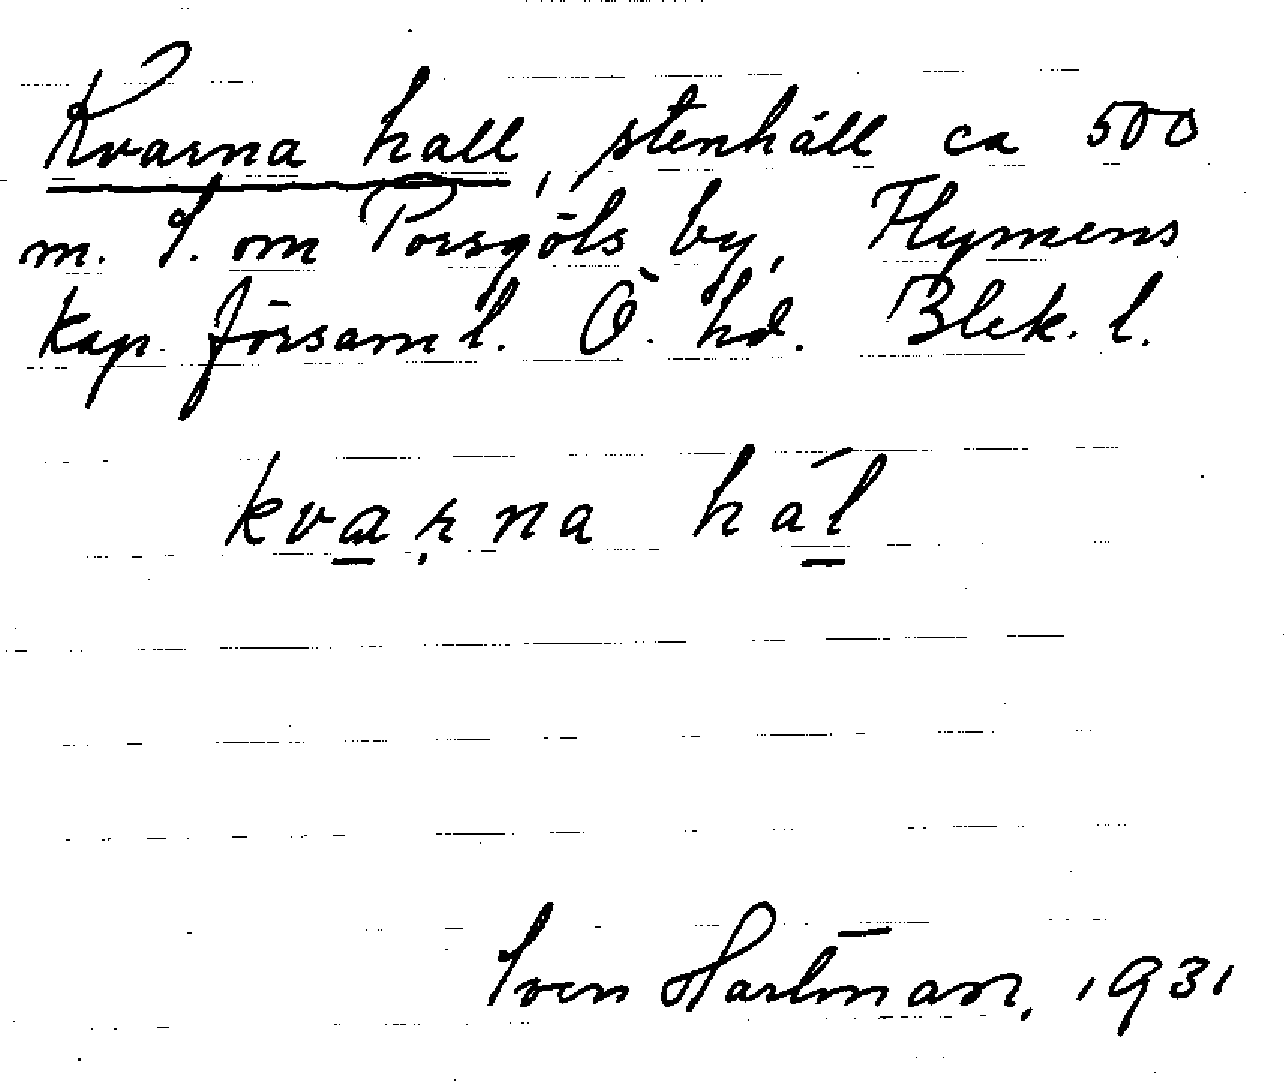 Kvarna hall, stenhäll ca 500
m. S. om Porsgöls by, Flymens
kap. församl. Ö. hd. Blek. l.
kvarna hál
Sven Hartman, 1931